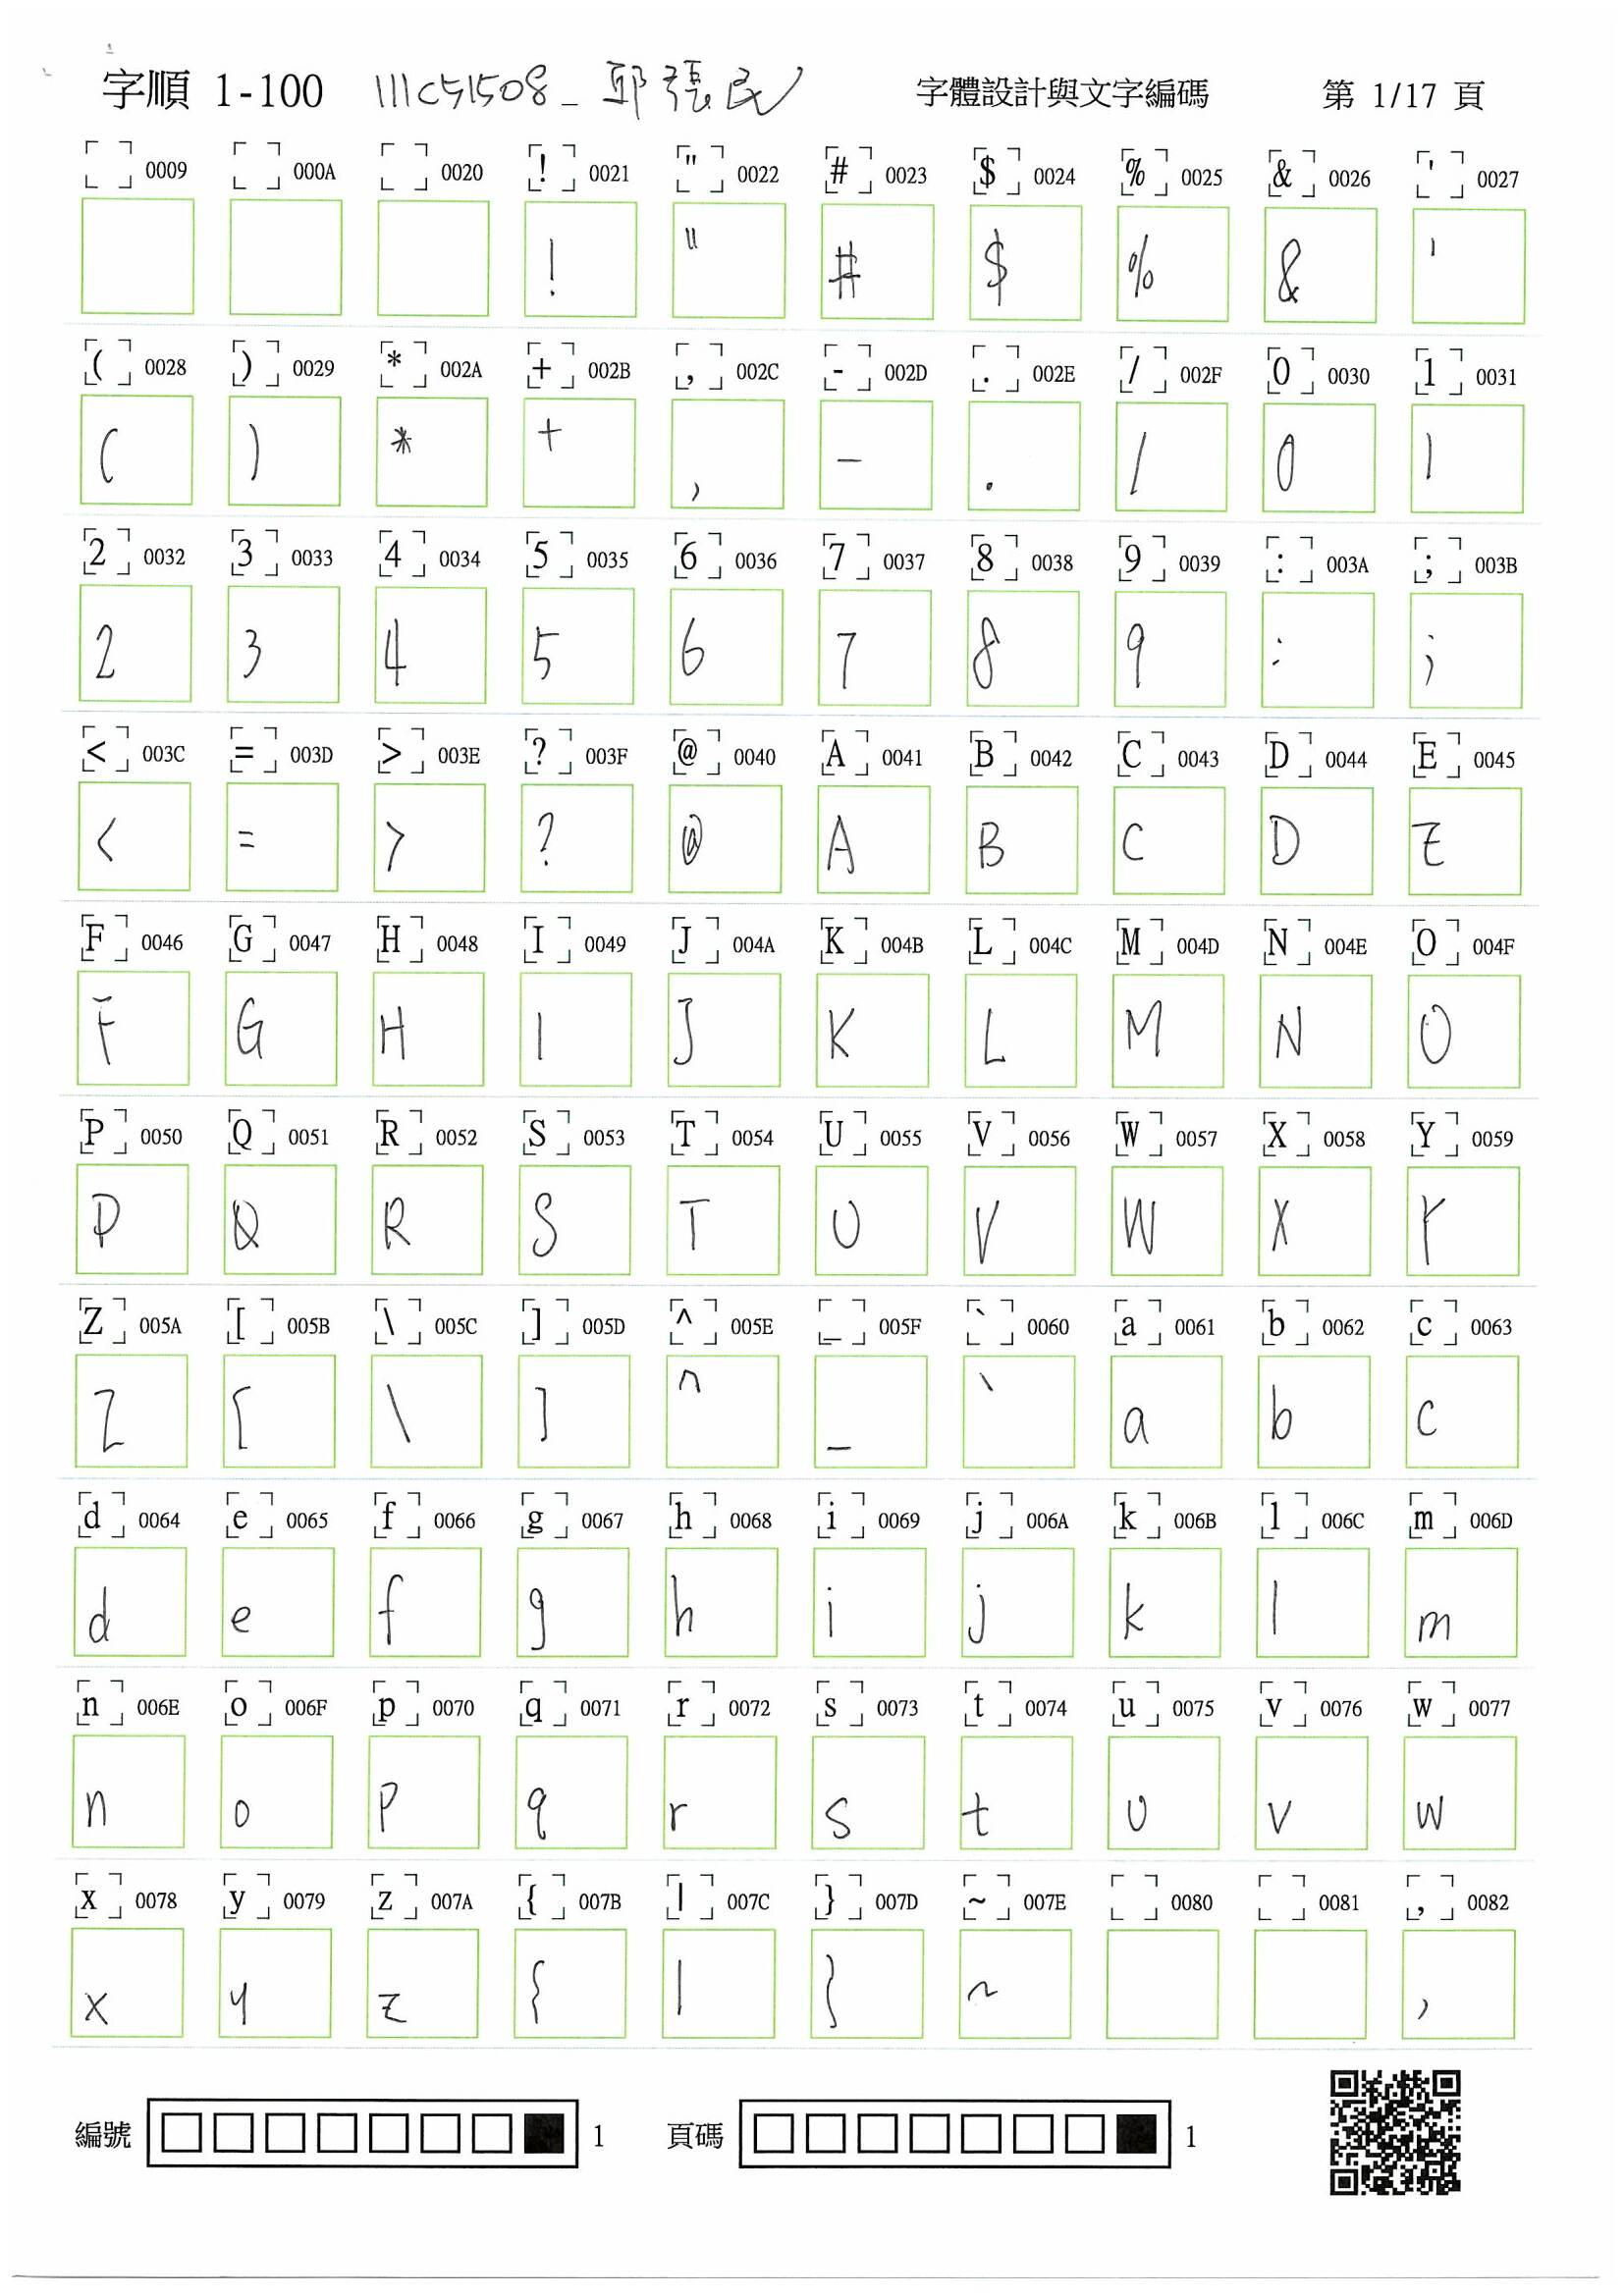 字順 1-100 111C51508_邱張民 字體設計與文字編碼 第 1/17 頁
0009 000A 0020 ! 0021 " 0022 # 0023 $ 0024 % 0025 & 0026 ' 0027
! " # $ % & '
( 0028 ) 0029 * 002A + 002B , 002C - 002D . 002E / 002F 0 0030 1 0031
( ) * + , - . / 0 1
2 0032 3 0033 4 0034 5 0035 6 0036 7 0037 8 0038 9 0039 : 003A ; 003B
2 3 4 5 6 7 8 9 : ;
< 003C = 003D > 003E ? 003F @ 0040 A 0041 B 0042 C 0043 D 0044 E 0045
< = > ? @ A B C D E
F 0046 G 0047 H 0048 I 0049 J 004A K 004B L 004C M 004D N 004E O 004F
F G H I J K L M N O
P 0050 Q 0051 R 0052 S 0053 T 0054 U 0055 V 0056 W 0057 X 0058 Y 0059
P Q R S T U V W X Y
Z 005A [ 005B \ 005C ] 005D ^ 005E _ 005F ` 0060 a 0061 b 0062 c 0063
Z [ \ ] ^ _ ` a b c
d 0064 e 0065 f 0066 g 0067 h 0068 i 0069 j 006A k 006B l 006C m 006D
d e f g h i j k l m
n 006E o 006F p 0070 q 0071 r 0072 s 0073 t 0074 u 0075 v 0076 w 0077
n o p q r s t u v w
x 0078 y 0079 z 007A { 007B | 007C } 007D ~ 007E 0080 0081 ‚ 0082
x y z { | } ~ ‚
編號 1 頁碼 1